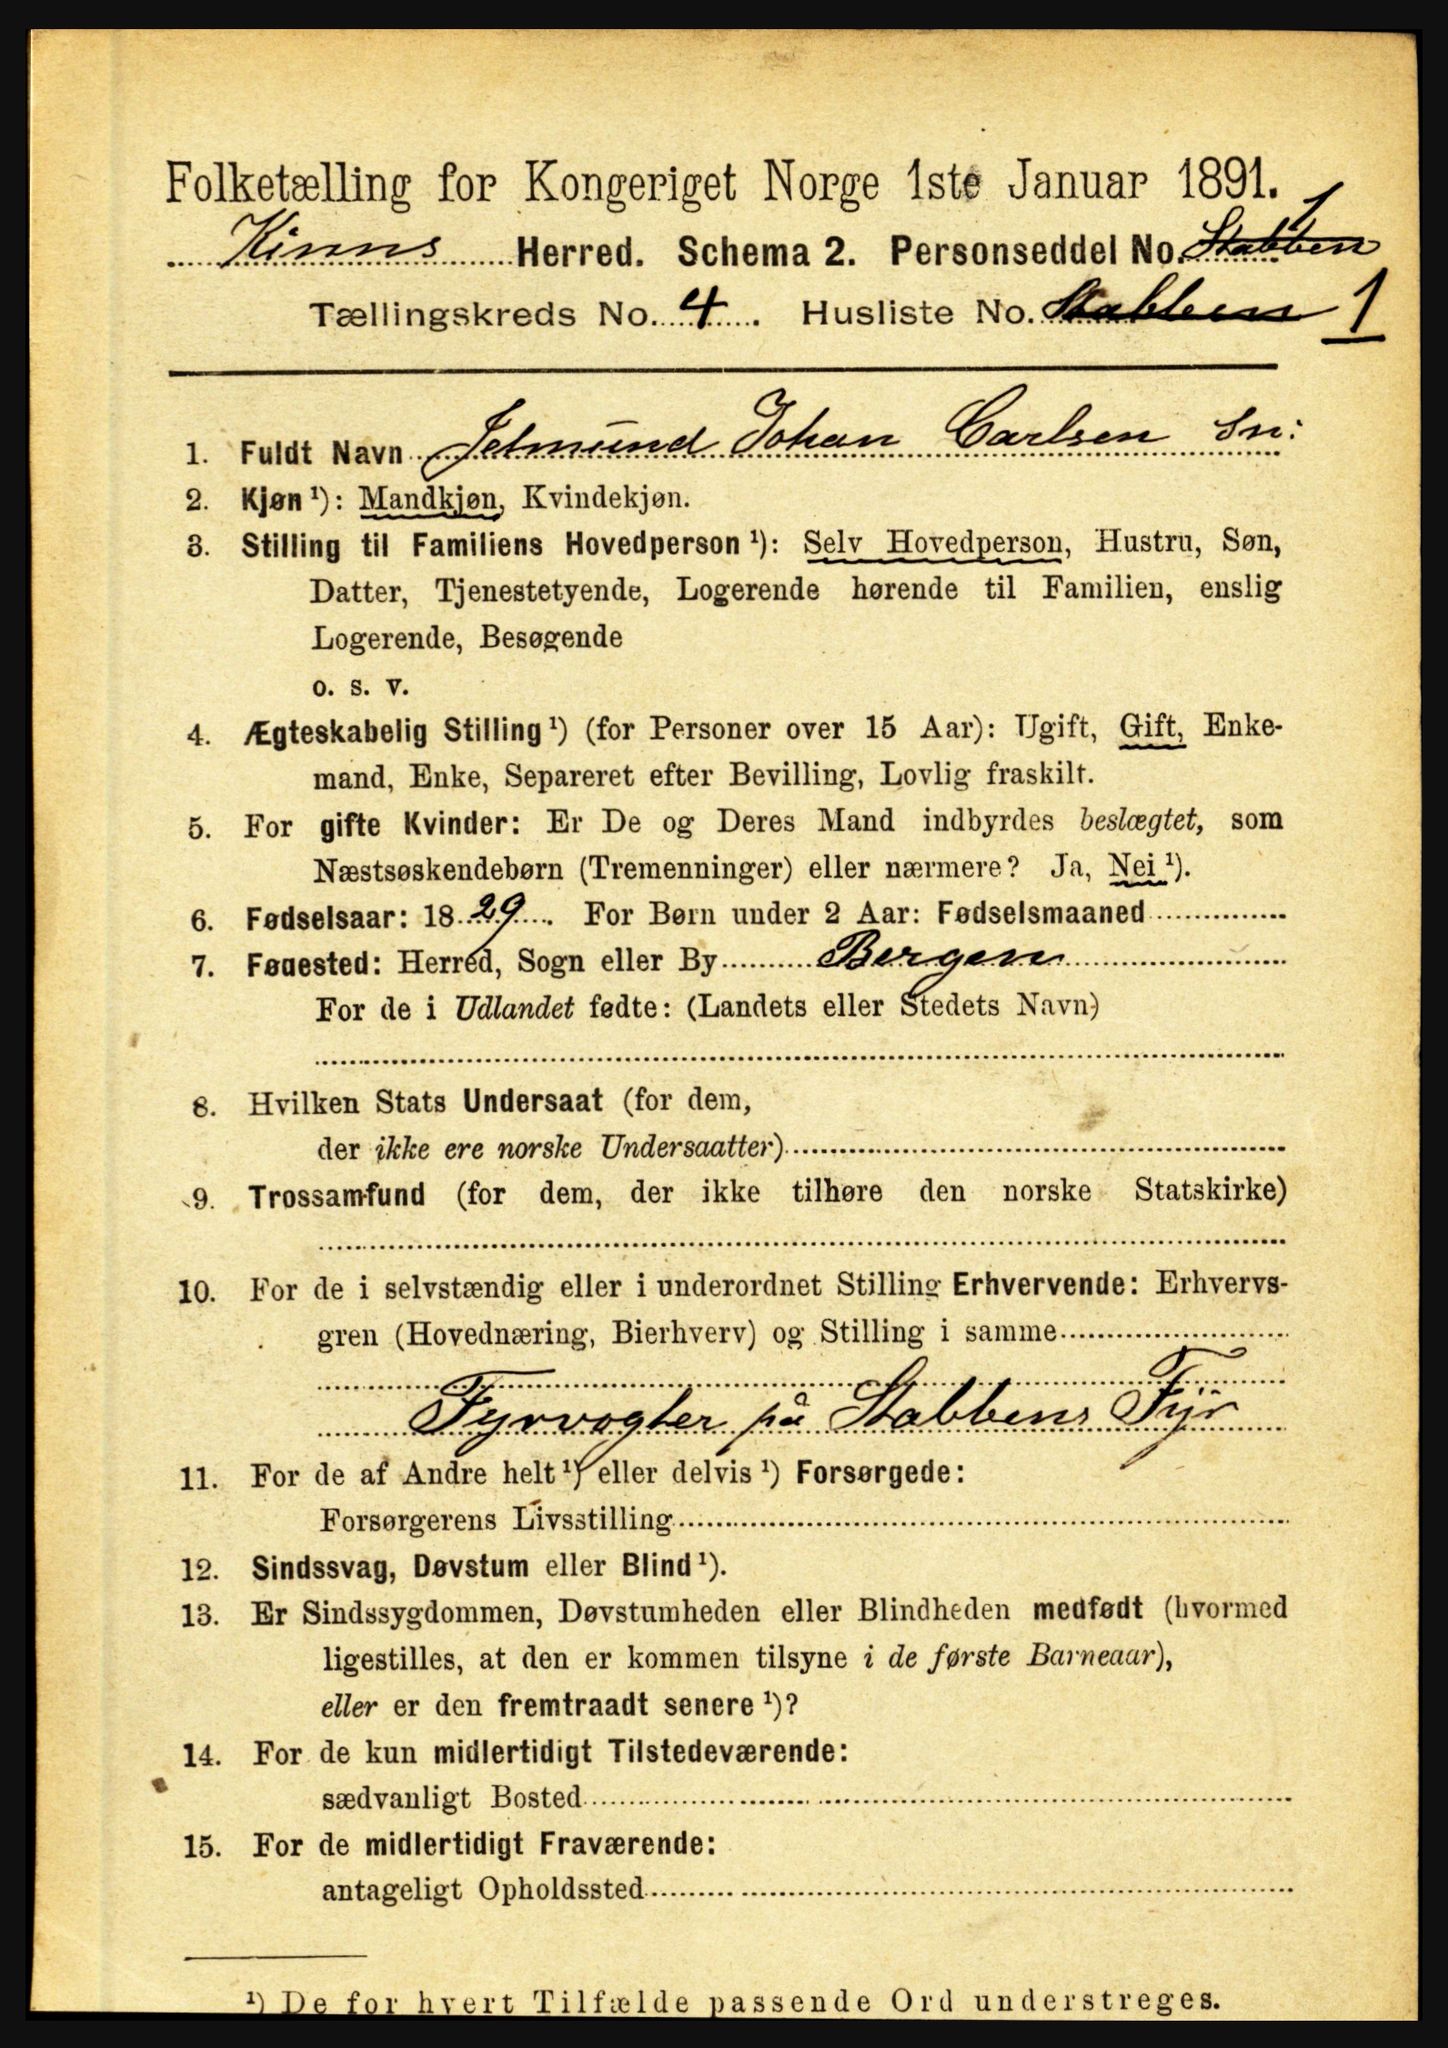 Folketælling for Kongeriget Norge 1ste Januar 1891.
Kinns Herred. Schema 2. Personseddel No. Stabben 1
Tællingskreds No. 4. Husliste No. Stabben 1
1. Fuldt Navn Jelmund Johan Carlsen Sn:
2. Kjøn ¹): Mandkjøn, Kvindekjøn.
3. Stilling til Familiens Hovedperson ¹): Selv Hovedperson, Hustru, Søn,
Datter, Tjenestetyende, Logerende hørende til Familien, enslig
Logerende, Besøgende
o. s. v.
4. Ægteskabelig Stilling ¹) (for Personer over 15 Aar): Ugift, Gift, Enke-
mand, Enke, Separeret efter Bevilling, Lovlig fraskilt.
5. For gifte Kvinder: Er De og Deres Mand indbyrdes beslægtet, som
Næstsøskendebørn (Tremenninger) eller nærmere? Ja, Nei ¹).
6. Fødselsaar: 1829. For Børn under 2 Aar: Fødselsmaaned
7. Fødested: Herred, Sogn eller By Bergen
For de i Udlandet fødte: (Landets eller Stedets Navn)
8. Hvilken Stats Undersaat (for dem,
der ikke ere norske Undersaatter)
9. Trossamfund (for dem, der ikke tilhøre den norske Statskirke)
10. For de i selvstændig eller i underordnet Stilling Erhvervende: Erhvervs-
gren (Hovednæring, Bierhverv) og Stilling i samme
Fyrvogter på Stabbens Fyr
11. For de af Andre helt ¹) eller delvis ¹) Forsørgede:
Forsørgerens Livsstilling
12. Sindssvag, Døvstum eller Blind ¹).
13. Er Sindssygdommen, Døvstumheden eller Blindheden medfødt (hvormed
ligestilles, at den er kommen tilsyne i de første Barneaar),
eller er den fremtraadt senere ¹)?
14. For de kun midlertidigt Tilstedeværende:
sædvanligt Bosted
15. For de midlertidigt Fraværende:
antageligt Opholdssted
¹) De for hvert Tilfælde passende Ord understreges.